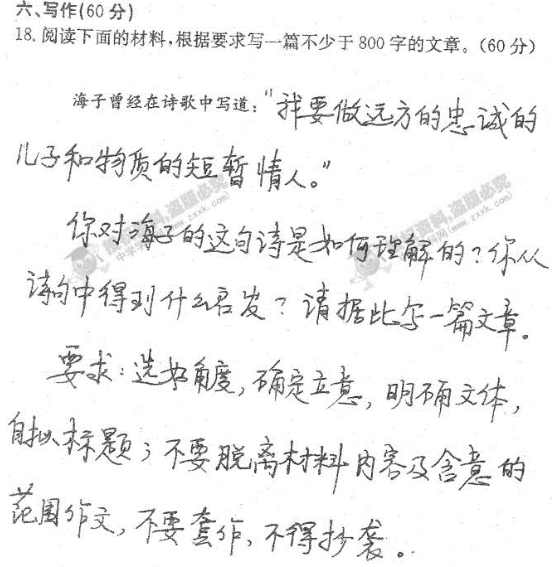 六、写作(60分)
18. 阅读下面的材料,根据要求写一篇不少于800字的文章。(60分)
海子曾经在诗歌中写道:“我要做远方的忠诚的
儿子和物质的短暂情人。”
你对海子的这句诗是如何理解的?你从
诗句中得到什么启发?请据此写一篇文章。
要求:选好角度,确定立意,明确文体,
自拟标题;不要脱离材料内容及含意的
范围作文,不要套作,不得抄袭。